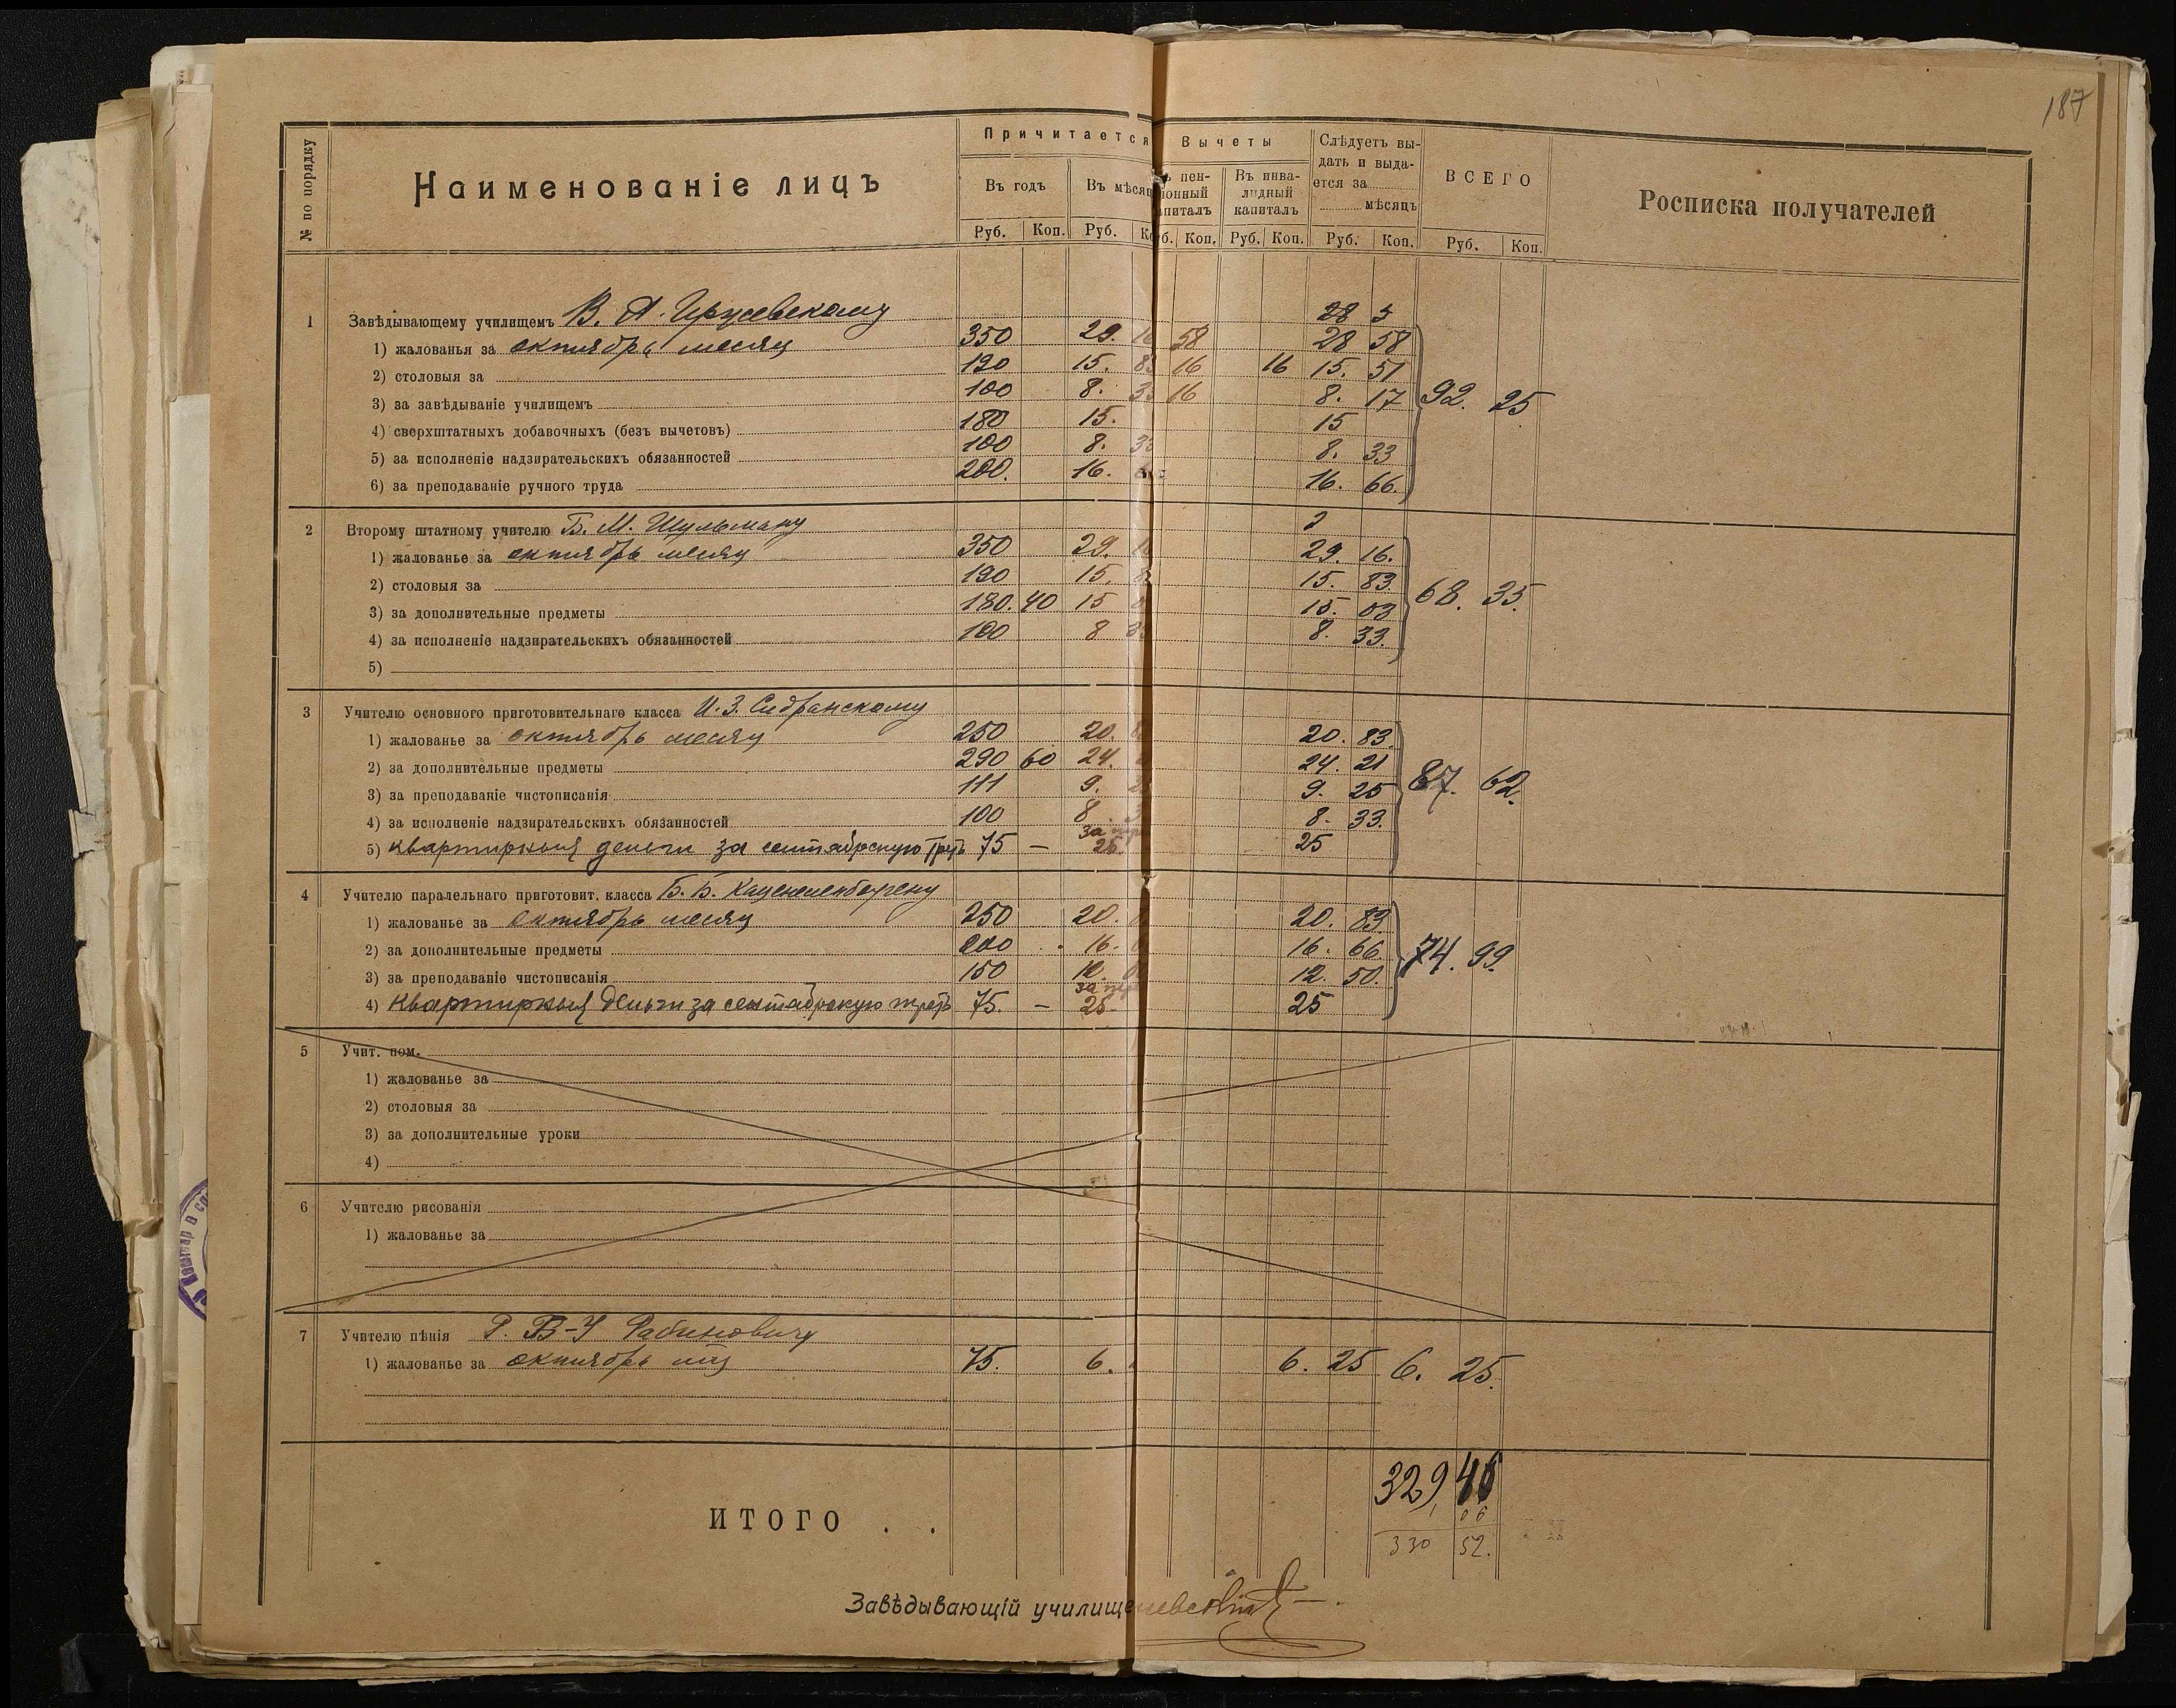 187
№ по порядку
Наименованіе лицъ
Причитается
Вычеты
Слѣдуетъ вы-
дать и выда-
ется за
мѣсяцъ
ВСЕГО
Росписка получателей
Въ годъ
Въ мѣсяц
ъ пен-
іонный
апиталъ
Въ инва-
лидный
капиталъ
Руб. Коп. Руб. Ко б. Коп. Руб. Коп. Руб. Коп. Руб. Коп.
28 5
1 Завѣдывающему училищемъ В. А.
1) жалованья за октябрь мѣсяц 350 29. 16 58 28 58
2) столовыя за 190 15. 83 16 16 15. 51
3) за завѣдываніе училищемъ 100 8. 33 16 8. 17 92. 25
4) сверхштатныхъ добавочныхъ (безъ вычетовъ) 180 15. 15
5) за исполненіе надзирательскихъ обязанностей 100 8. 33 8. 33
6) за преподаваніе ручного труда 200. 16. 16. 66.
2 Второму штатному учителю Б. М. Шульману 2
1) жалованье за октябрь мѣсяц 350 29. 16 29. 16.
2) столовыя за 190 15. 8 15. 83
3) за дополнительные предметы 180. 40 15 15. 03 68. 35.
4) за исполненіе надзирательскихъ обязанностей 100 8 33 8. 33.
5)
3 Учителю основного приготовительнаго класса И. З. Сидранскому
1) жалованье за октябрь мѣсяц 250 20. 8 20. 83
2) за дополнительные предметы 290 60 24. 24. 21
3) за преподаваніе чистописанія 111 9. 2 9. 25 87. 62.
4) за исполненіе надзирательскихъ обязанностей 100 8. 3 8. 33.
5) квартирныя деньги за сентябрскую треть 75 — за тре 25. 25
4 Учителю паралельнаго приготовит. класса Б. Б. Каценеленбогену
1) жалованье за октябрь мѣсяц 250 20. 20. 83.
2) за дополнительные предметы 200 16. 16. 66
3) за преподаваніе чистописанія 150 12. 12. 50. 74. 99.
4) квартирныя деньги за сентябрскую треть 75. — за тре 25- 25
5 Учит. пом.
1) жалованье за
2) столовыя за
3) за дополнительные уроки
4)
6 Учителю рисованія
1) жалованье за
7 Учителю пѣнія Г. В-У Рабиновичу
1) жалованье за октябрь мц 75. 6. 6. 25 6. 25.
329, 46
06
330 52.
ИТОГО . .
Завѣдывающій училище